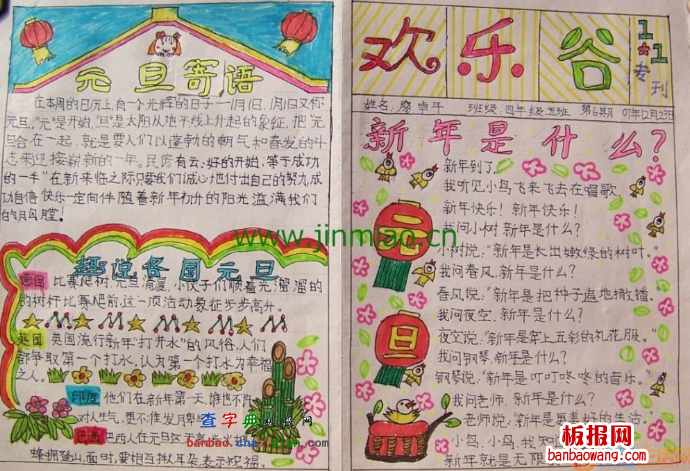 元旦寄语
在本周的日历上,有一个光辉的日子—1月1日,1月1日又称
元旦,"元"是开始,"旦"是太阳从地平线上升起的象征,把"元
旦"合在一起,就是要人们以蓬勃的朝气和奋发的斗
志来迎接崭新的一年。民谚有云:好的开始,等于成功
的一半"在新来临之际只要我们诚心地付出自己的努力,成
功自信快乐一定向伴随着新年初升的阳光溢满我们
的胸膛。
趣说各国元旦
德国 比赛爬树,元旦清晨,小伙子们顺着光溜溜的
的树杆比赛爬前,这一项活动象征步步高升。
英国 英国流行新年"打井水"的风俗,人们
都争取第一个打水,认为第一个打水为幸福
之人。
印度 他们在新年第一天谁也不许
对人生气,更不准发脾
巴西 巴西人在元旦这
蜂拥登山,面时,要相互揪耳朵,表示祝福。
欢乐谷
1·1
专刊
姓名: 班级 四年级五班 第6期 07年12月29日
新年是什么?
元
旦
新年到了,
我听见小鸟飞来飞去在唱歌:
新年快乐!新年快乐!
我问小树,新年是什么?
小树说:"新年是长出嫩绿的树叶。"
我问春风,新年是什么?
春风说:"新年是把种子遍地撒播。
我问夜空,新年是什么?
夜空说:"新年是穿上五彩的礼花服。"
我问钢琴,新年是什么?
钢琴说:"新年是叮叮咚咚的音乐。
我问老师,新年是什么?
老师说:新年是更美好的生活。
小鸟,小鸟,我知
新年就是无限
www.jinmiao.cn
查字典
板报网
banbaowang.com